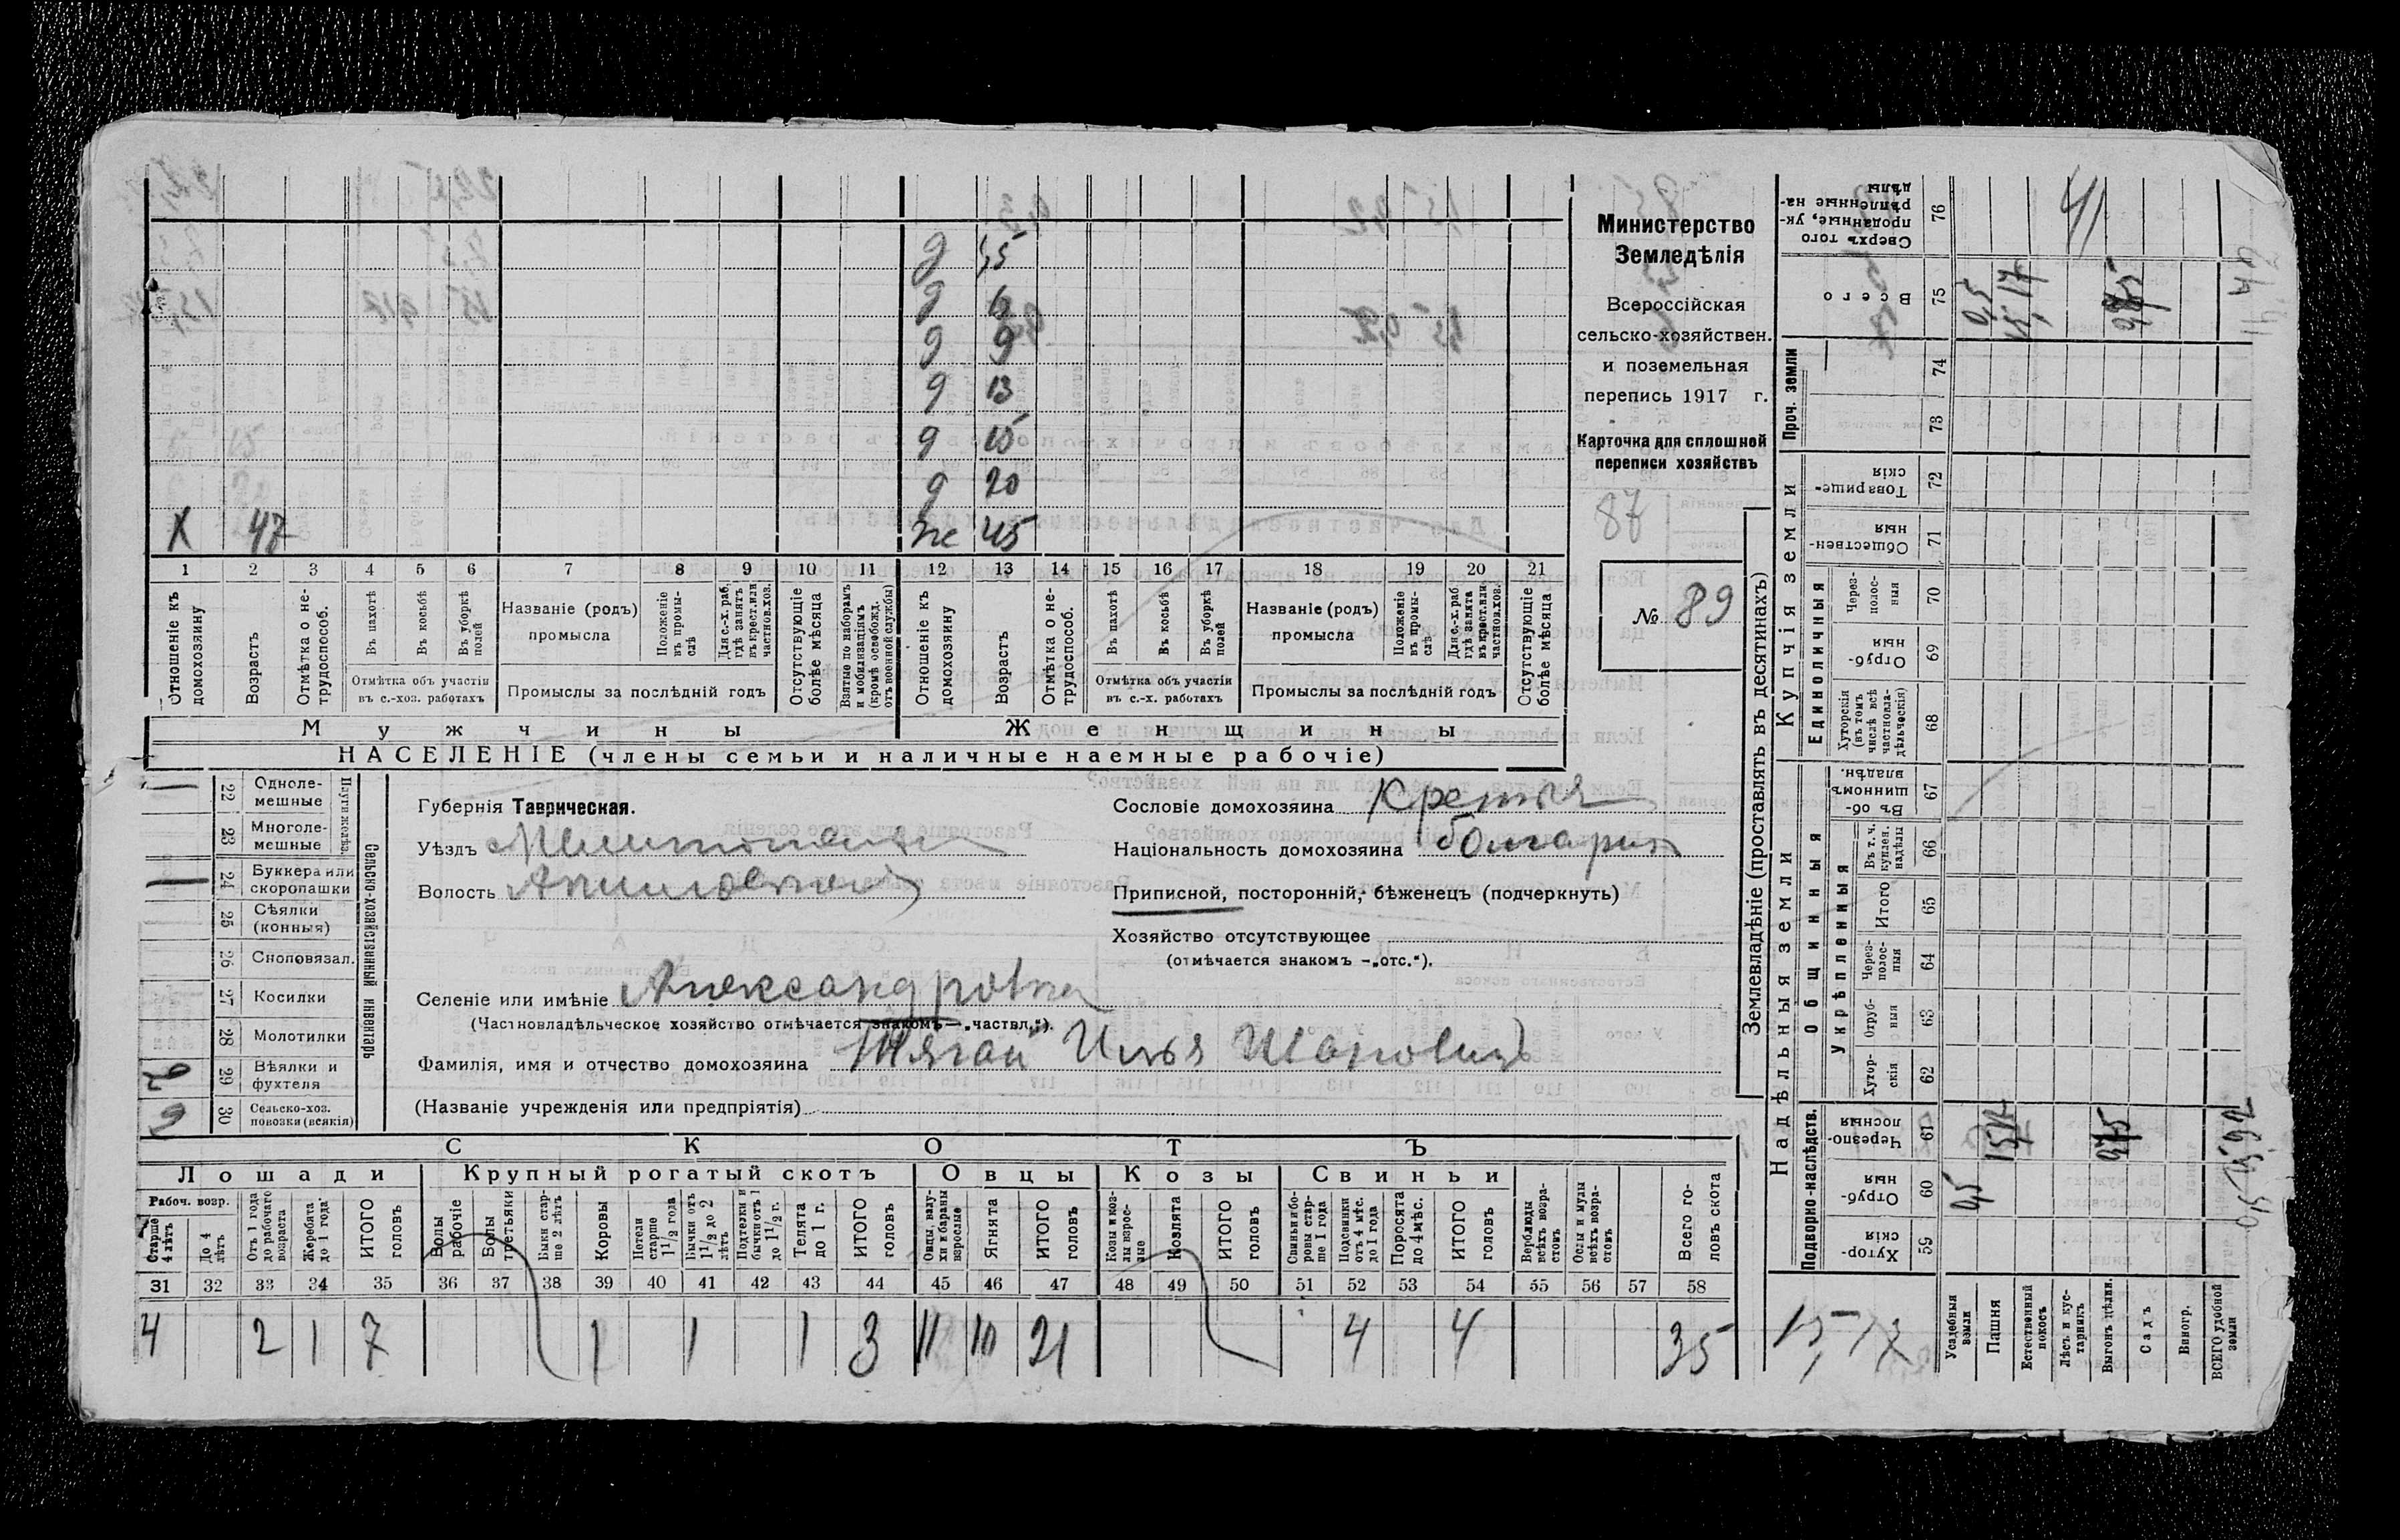 д 1,5
д 6
д 9
д 13
д 15
д 20
Х 47 ж 45
1 2 3 4 5 6 7 8 9 10 11 12 13 14 15 16 17 18 19 20 21
Отношеніе къ домохозяину
Возрастъ
Отмѣтка о не-трудоспособ.
Въ пахотѣ
Въ косьбѣ
Въ уборкѣ полей
Отмѣтка объ участіи
въ с.-хоз. работахъ
Названіе (родъ)
промысла
Положеніе въ промы-слѣ
Для с.-х. раб. гдѣ занятъ въ крест. или частнов. хоз.
Промыслы за послѣдній годъ
Отсутствующіе болѣе мѣсяца
Взятые по наборамъ и мобилизаціямъ (кромѣ освобожд. отъ военной службы)
Отношеніе къ домохозяину
Возрастъ
Отмѣтка о не-трудоспособ.
Въ пахотѣ
Въ косьбѣ
Въ уборкѣ полей
Отмѣтка объ участіи
въ с.-х. работахъ
Названіе (родъ)
промысла
Положеніе въ промы-слѣ
Для с.-х. раб. гдѣ занята въ крест. или частнов. хоз.
Промыслы за послѣдній годъ
Отсутствующіе болѣе мѣсяца
Мужчины Женщины
НАСЕЛЕНІЕ (члены семьи и наличные наемные рабочіе)
Министерство
Земледѣлія
Всероссійская
сельско-хозяйствен.
и поземельная
перепись 1917 г.
Карточка для сплошной
переписи хозяйствъ
87
№ 89
22 Одноле-мешные
23 Многоле-мешные
Плуги желѣз.
24 Буккера или скоропашки
25 Сѣялки (конныя)
26 Сноповязал.
27 Косилки
28 Молотилки
29 Вѣялки и фухтеля
30 Сельско-хоз. повозки (всякія)
Сельско-хозяйственный инвентарь
Губернія Таврическая.
Уѣздъ Мелитопольск
Волость
Сословіе домохозяина Крестья
Національность домохозяина болгарин
Приписной, посторонній, бѣженецъ (подчеркнуть)
Хозяйство отсутствующее
(отмѣчается знакомъ —„отс.“).
Селеніе или имѣніе Александровка
(Частновладѣльческое хозяйство отмѣчается знакомъ—„частвл.“).
Фамилія, имя и отчество домохозяина Тягай Илья
(Названіе учрежденія или предпріятія)
СКОТЪ
Лошади Крупный рогатый скотъ Овцы Козы Свиньи
Рабоч. возр.
Старше 4 лѣтъ
До 4 лѣтъ
Отъ 1 года до рабочаго возраста
Жеребята до 1 года
ИТОГО головъ
Волы рабочіе
Волы третьяки
Быки стар-ше 2 лѣтъ
Коровы
Нетели старше 1 1/2 года
Бычки отъ 1 1/2 до 2 лѣтъ
Подтелки и бычки отъ 1 до 1 1/2 г.
Телята до 1 г.
ИТОГО головъ
Овцы, валу-хи и бараны взрослые
Ягнята
ИТОГО головъ
Козы и коз-лы взрос-лые
Козлята
ИТОГО головъ
Свиньи и бо-ровы стар-ше 1 года
Подсвинки отъ 4 мѣс. до 1 года
Поросята до 4 мѣс.
ИТОГО головъ
Верблюды всѣхъ возра-стовъ
Ослы и мулы всѣхъ возра-стовъ
Всего го-ловъ скота
31 32 33 34 35 36 37 38 39 40 41 42 43 44 45 46 47 48 49 50 51 52 53 54 55 56 57 58
4 2 1 7 1 1 1 3 11 10 21 4 4 35
Землевладѣніе (проставлять въ десятинахъ)
Сверхъ того проданные, ук-рѣпленные на-дѣлы 76
Всего 75
Проч. земли 74 73
Купчія земли
Товарище-скія 72
Обществен-ныя 71
Единоличныя
Через-полос-ныя 70
Отруб-ныя 69
Хуторскія (въ томъ числѣ всѣ частновла-дѣльческія) 68
Надѣльныя земли
Общинныя
Въ об-щинномъ владѣн. 67
Укрѣпленныя
Въ т. ч. куплен. надѣлы 66
Итого 65
Через-полос-ныя 64
Отруб-ныя 63
Хутор-скія 62
Подворно-наслѣдств.
Черезпо-лосныя 61
Отруб-ныя 60
Хутор-скія 59
Усадебныя земли
Пашня
Естественный покосъ
Лѣсъ и кус-тарникъ
Выгонъ цѣлин.
Садъ
Виногр.
ВСЕГО удобной земли
0,5 15,17
0,5 15,17
15,92
15,17
41